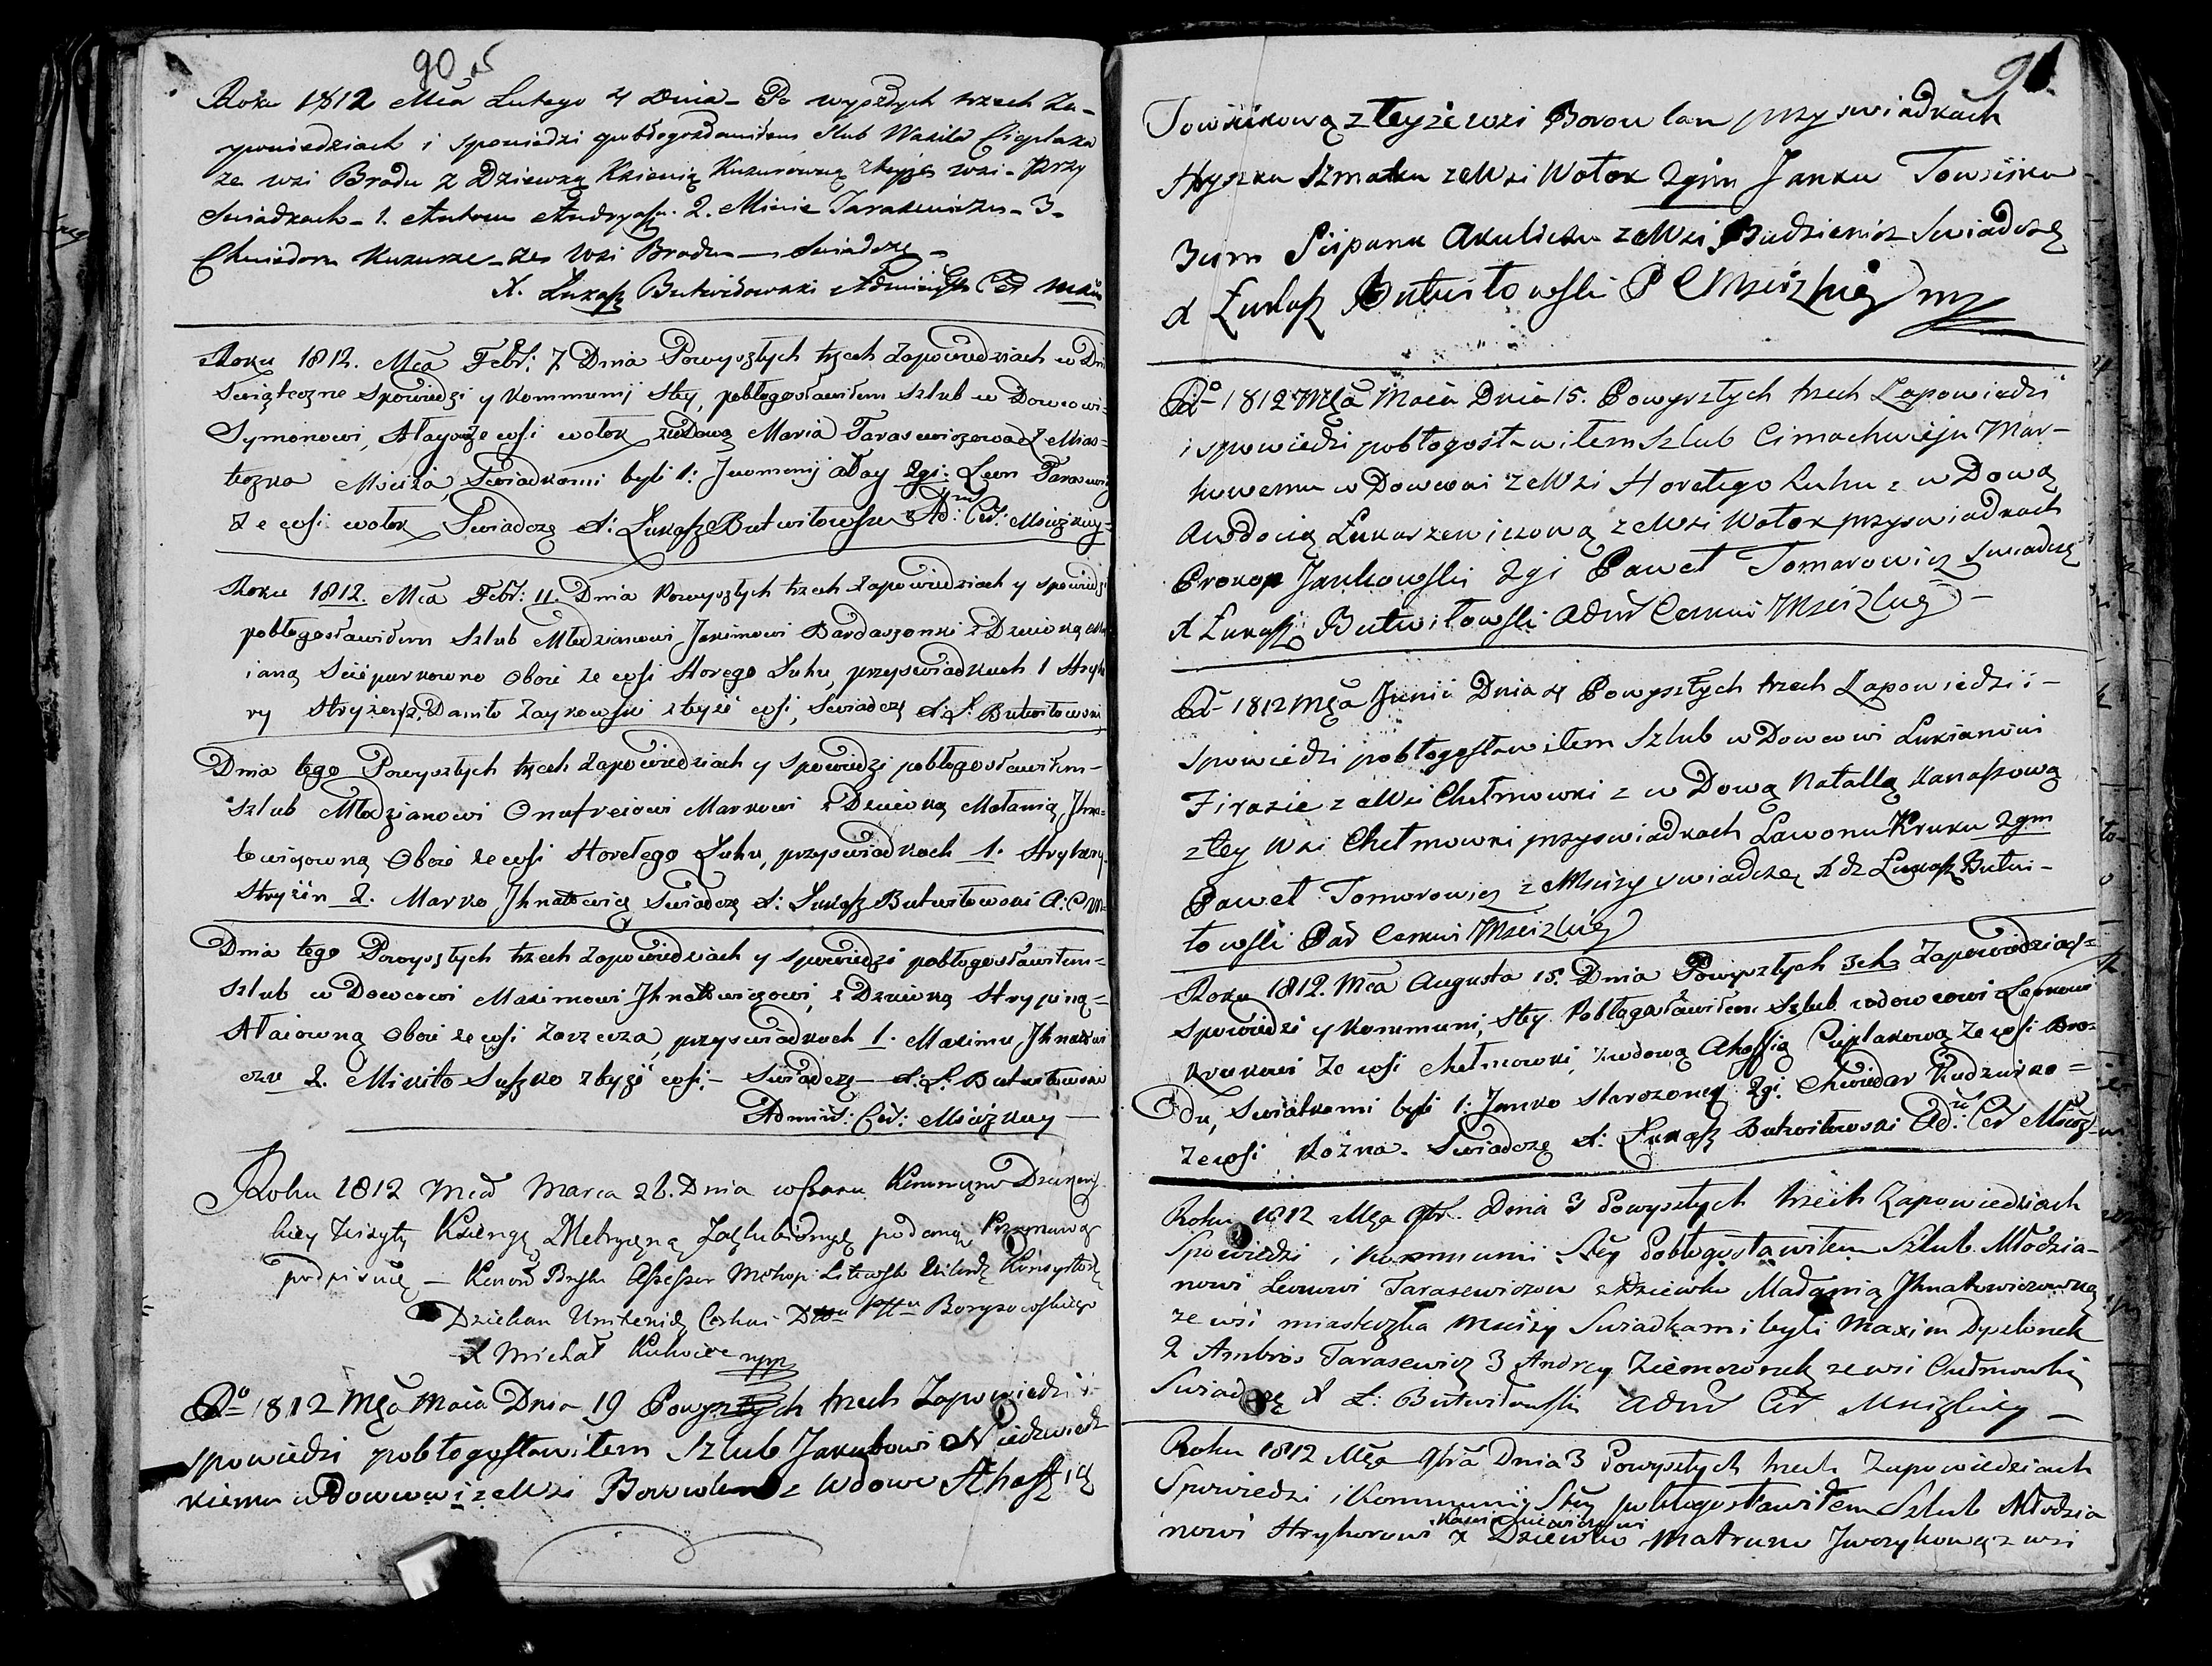 90
Roku 1812 Mca Lutego 4 Dnia - Po wyszłych trzech Za-
powiedziach i spowiedzi pobłogosławiłem Slub Wasila Cieplaka
ze wsi Brodu z Dziewką Xienią Kuzurówną z teyże wsi - Przy
Swiadkach - 1. Antonu Andryasz. 2. Minie Tarasewiczu - 3 -
Chwiedoru Kuzurze - ze wsi Brodu - Swiadczę -
X. Łukasz Butwiłowski Administr Cer
Roku 1812. Mca Febr: 7 Dnia Powyszłych trzech Zapowiedziach w Dni
Swiąteczne Spowiedzi y Kommunij Stey, pobłogosławiłem szlub w Dowcowi
Symonowi, Ałay ze wsi wołok z wdową Maria Tarasewiczową z Mias=
teczka Mściża, Swiadkami byli 1: Ałay 2gi: Leon Tarasewicz
Ze wsi wołok Swiadczę X: Łukasz Butwiłowski Ad: Cer: Msciżkiey
Roku 1812. Mca Febr: 11. Dnia Powyszłych trzech Zapowiedziach y spowiedzi
pobłogosławiłem Szlub Młodzianowi Jakimowi z Dziewką
ianą oboie ze wsi Horego Łuhu, przyswiadkach 1 Hryho
ry Daniło Zaykowski z teyże wsi, Swiadczę X: Ł: Butwiłowski
Dnia tego Powyszłych trzech Zapowiedziach y spowiedzi pobłogosławiłem -
szlub Młodzianowi Onufreiowi Markowi z Dziewką Małanią Ihna=
towiczowną oboie ze wsi Horełego Łuhu, przyswiadkach 1. Hryhory
2. Marko Ihnatowicz Swiadczę X: Łukasz Butwiłowski A: C
Dnia tego Powyszłych trzech Zapowiedziach y spowiedzi pobłogosławiłem=
szlub w Dowcowi Maximowi Ihnatowiczowi, z Dziewką Hrypiną=
Ałaiowną oboie ze wsi Zarzecza, przyswiadkach 1. Maximu Ihnatowi
czu 2. Mikito Suszko z teyże wsi, - Swiadczę - X: Ł: Butwiłowski
Admint: Cer: Msciżkiey -
Roku 1812 Mca Marca 26. Dnia w czasie Dziekań
kiey Wizyty Księgę Metryczną Zaszlubionych podaną
podpisuię - Assessor Metrop: Litewsk Konsystorza
Dziekan Cerkwi Pttu Borysowskiego
X Michał mpp
Ro 1812 Msca Maia Dnia 19 Powyszłych trzech Zapowiedzi i
spowiedzi pobłogosławiłem Szlub Jakubowi Niedzwiedz
kiemu w Dowcowi ze Wsi Borowlan z Wdową Ahafią
91.
Towścikową z teyże wsi Borowlan przyswiadkach
Hryszku Szmatku ze Wsi Wołok 2gim Janku Towściku
3cim Scipanu Akuliczu ze Wsi Budzienicz Swiadczę
X Łukasz Butwiłowski P C Mściżkiey mp
Ro 1812 Msca Maia Dnia 15. Powyszłych trzech Zapowiedzi
i spowiedzi pobłogosławiłem Szlub Cimachwieju Mar-
kowemu w Dowcowi ze Wsi Horełego Łuhu z w Dową
Awdocią Łukaszewiczową ze Wsi Wołok przyswiadkach
Prokop Jankowski 2gi Paweł Tomarowicz Swiadczę
X Łukasz Butwiłowski Admr Cerkwi Msciżkiey -
Ro 1812 Msca Junii Dnia 4 Powyszłych trzech Zapowiedzi i -
Spowiedzi pobłogosławiłem Szlub w Dowcowi Łukianowi
ze Wsi Chełmowki z w Dową Natallą Kanaszową
z tey Wsi Chełmowki przyswiadkach Lawonu Kruku 2gm
Paweł Tomorowicz z Mściży swiadczę X Łukasz Butwi-
towski Cerkwi Mściżkiey
Roku 1812. Mca Augusta 15. Dnia Powyszłych 3ch Zapowiedziach=
spowiedzi y Kommuni, Stey Pobłogosławiłem Szlub wdowcowi Leonowi
Krukowi Ze wsi Chełmowki, z wdową Ahafią Cieplakową Ze wsi Bro=
du, Swiatkami byli 1: Janko 2gi: Chwiedor Kudzierko=
ze wsi Roźna. Swiadczę X: Łukasz Butwiłowski Ad: Cer Mściż
Roku 1812 Msca 9br. Dnia 3 Powyszłych trzech Zapowiedziach
Spowiedzi i Kommunii Stey Pobłogosławiłem Szlub Młodzia-
nowi Leonowi Tarasewiczowi z Dziewką Małanią Ihnatowiczowną
ze wsi miasteczka Msciży Swiadkami byli Maxim
2 Ambros Tarasewicz 3 Andrey ze wsi Chełmowki
Swiadczę X Ł: Butwiłowski Admr Cer Msciżkiey -
Roku 1812 Msca 9bra Dnia 3 Powyszłych trzech Zapowiedziach
Spowiedzi i Kommunij Stey pobłogosławiłem Szlub Młodzia
nowi Hryhorowi z Dziewką Matruną ze wsi